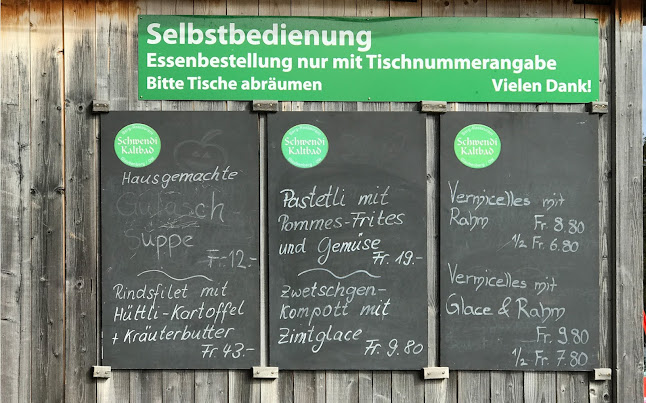 Selbstbedienung
Essenbestellung nur mit Tischnummerangabe
Bitte Tische abräumen Vielen Dank!
Schwendi
Kaltbad
Hausgemachte
Gulasch
Suppe
Fr. 12.-
Rindsfilet mit
Hüttli-Kartoffel
+ Kräuterbutter
Fr 43.-
Schwendi
Kaltbad
Pastetli mit
Pommes-Frites
und Gemüse
Fr. 19.-
Zwetschgen-
kompott mit
Zimtglace
Fr. 9.80
Schwendi
Kaltbad
Vermicelles mit
Rahm Fr. 8.80
½ Fr. 6.80
Vermicelles mit
Glace & Rahm
Fr. 9.80
½ Fr. 7.80